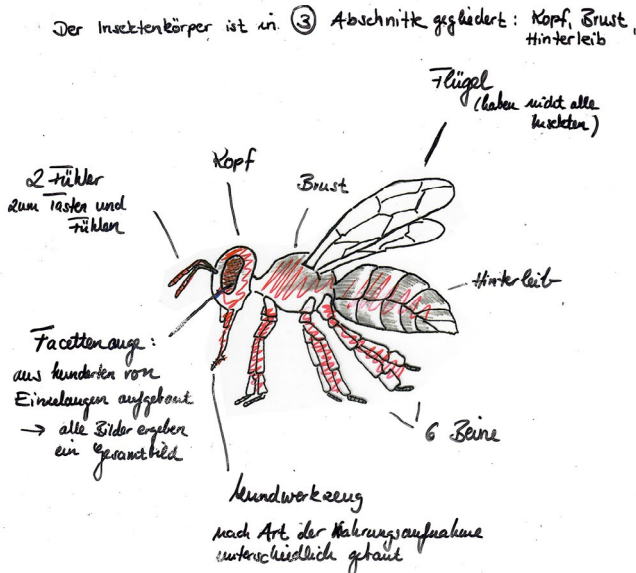 Der Insektenkörper ist in ③ Abschnitte gegliedert: Kopf, Brust,
Hinterleib
Flügel
(haben nicht alle
Insekten)
Kopf
Brust
2 Fühler
zum Tasten und
Fühlen
Hinterleib
Facettenauge:
aus hunderten von
Einzelaugen aufgebaut
→ alle Bilder ergeben
ein Gesamtbild
6 Beine
Mundwerkzeug
nach Art der Nahrungsaufnahme
unterschiedlich gebaut